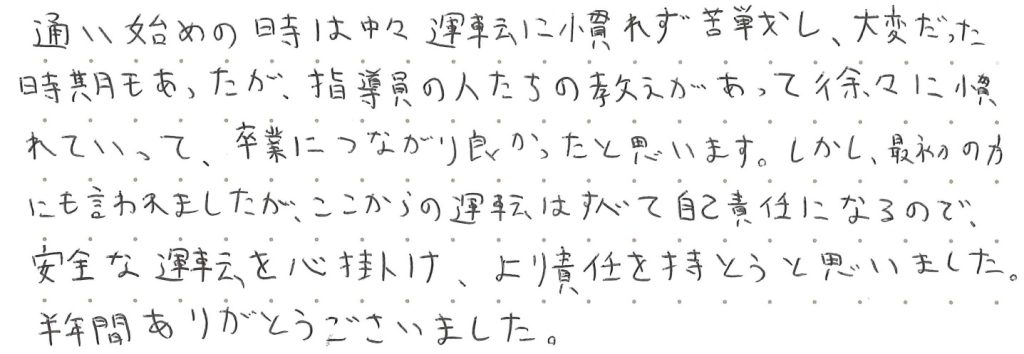 通い始めの時は中々運転に慣れず苦戦し、大変だった
時期もあったが、指導員の人たちの教えがあって徐々に慣
れていって、卒業につながり良かったと思います。しかし、最初の方
にも言われましたが、ここからの運転はすべて自己責任になるので、
安全な運転を心掛け、より責任を持とうと思いました。
半年間ありがとうございました。